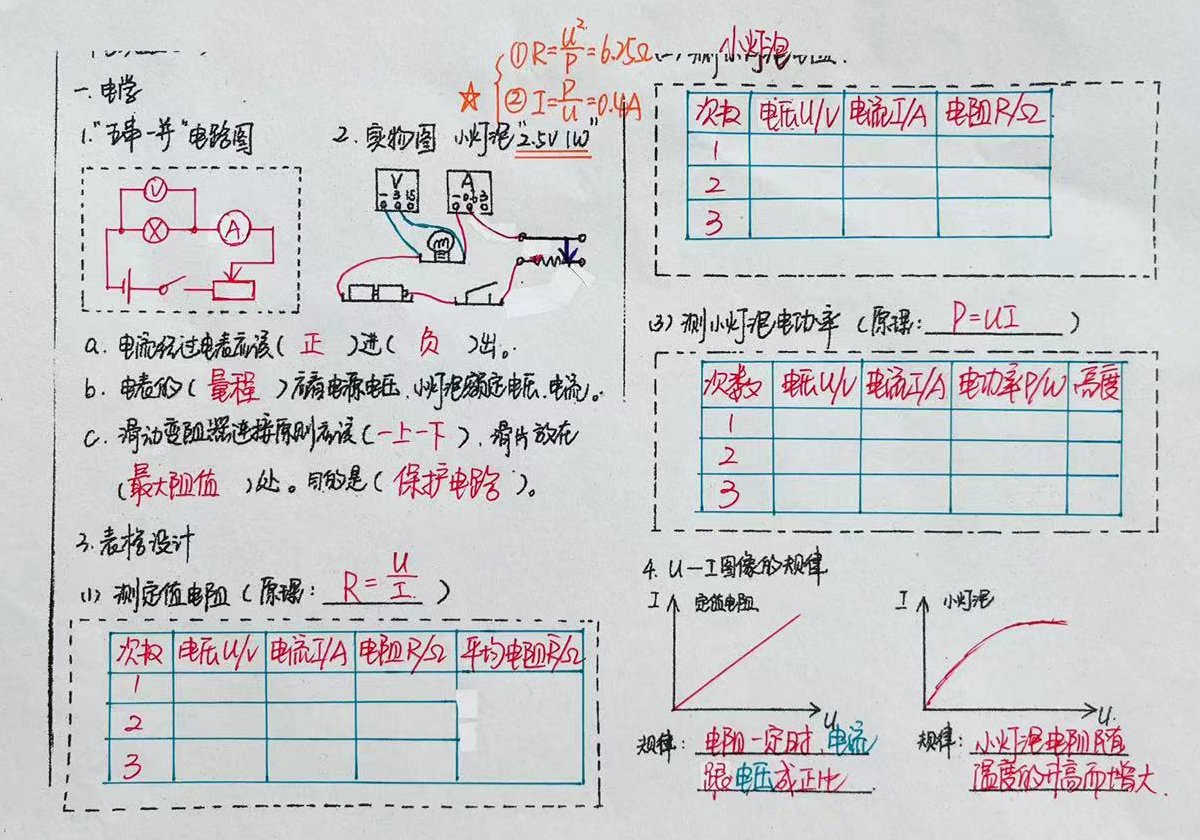 一.电学
①R=U²/P=6.25Ω
②I=P/U=0.4A
1."五串一并"电路图
2.实物图 小灯泡"2.5V 1W"
V
A
V
- 3 15
A
- 0.6 3
a.电流经过电表应该(正)进(负)出。
b.电表的(量程)应看电源电压、小灯泡额定电压、电流。
c.滑动变阻器连接原则应该(一上一下),滑片放在
(最大阻值)处。目的是(保护电路)。
3.表格设计
(1)测定值电阻(原理:R=U/I)
次数 电压U/V 电流I/A 电阻R/Ω 平均电阻R/Ω
1
2
3
小灯泡
次数 电压U/V 电流I/A 电阻R/Ω
1
2
3
(3)测小灯泡电功率(原理:P=UI)
次数 电压U/V 电流I/A 电功率P/W 亮度
1
2
3
4.U-I图像的规律
I 定值电阻
U
规律:电阻一定时,电流
跟电压成正比
I 小灯泡
U
规律:小灯泡电阻随
温度的升高而增大.